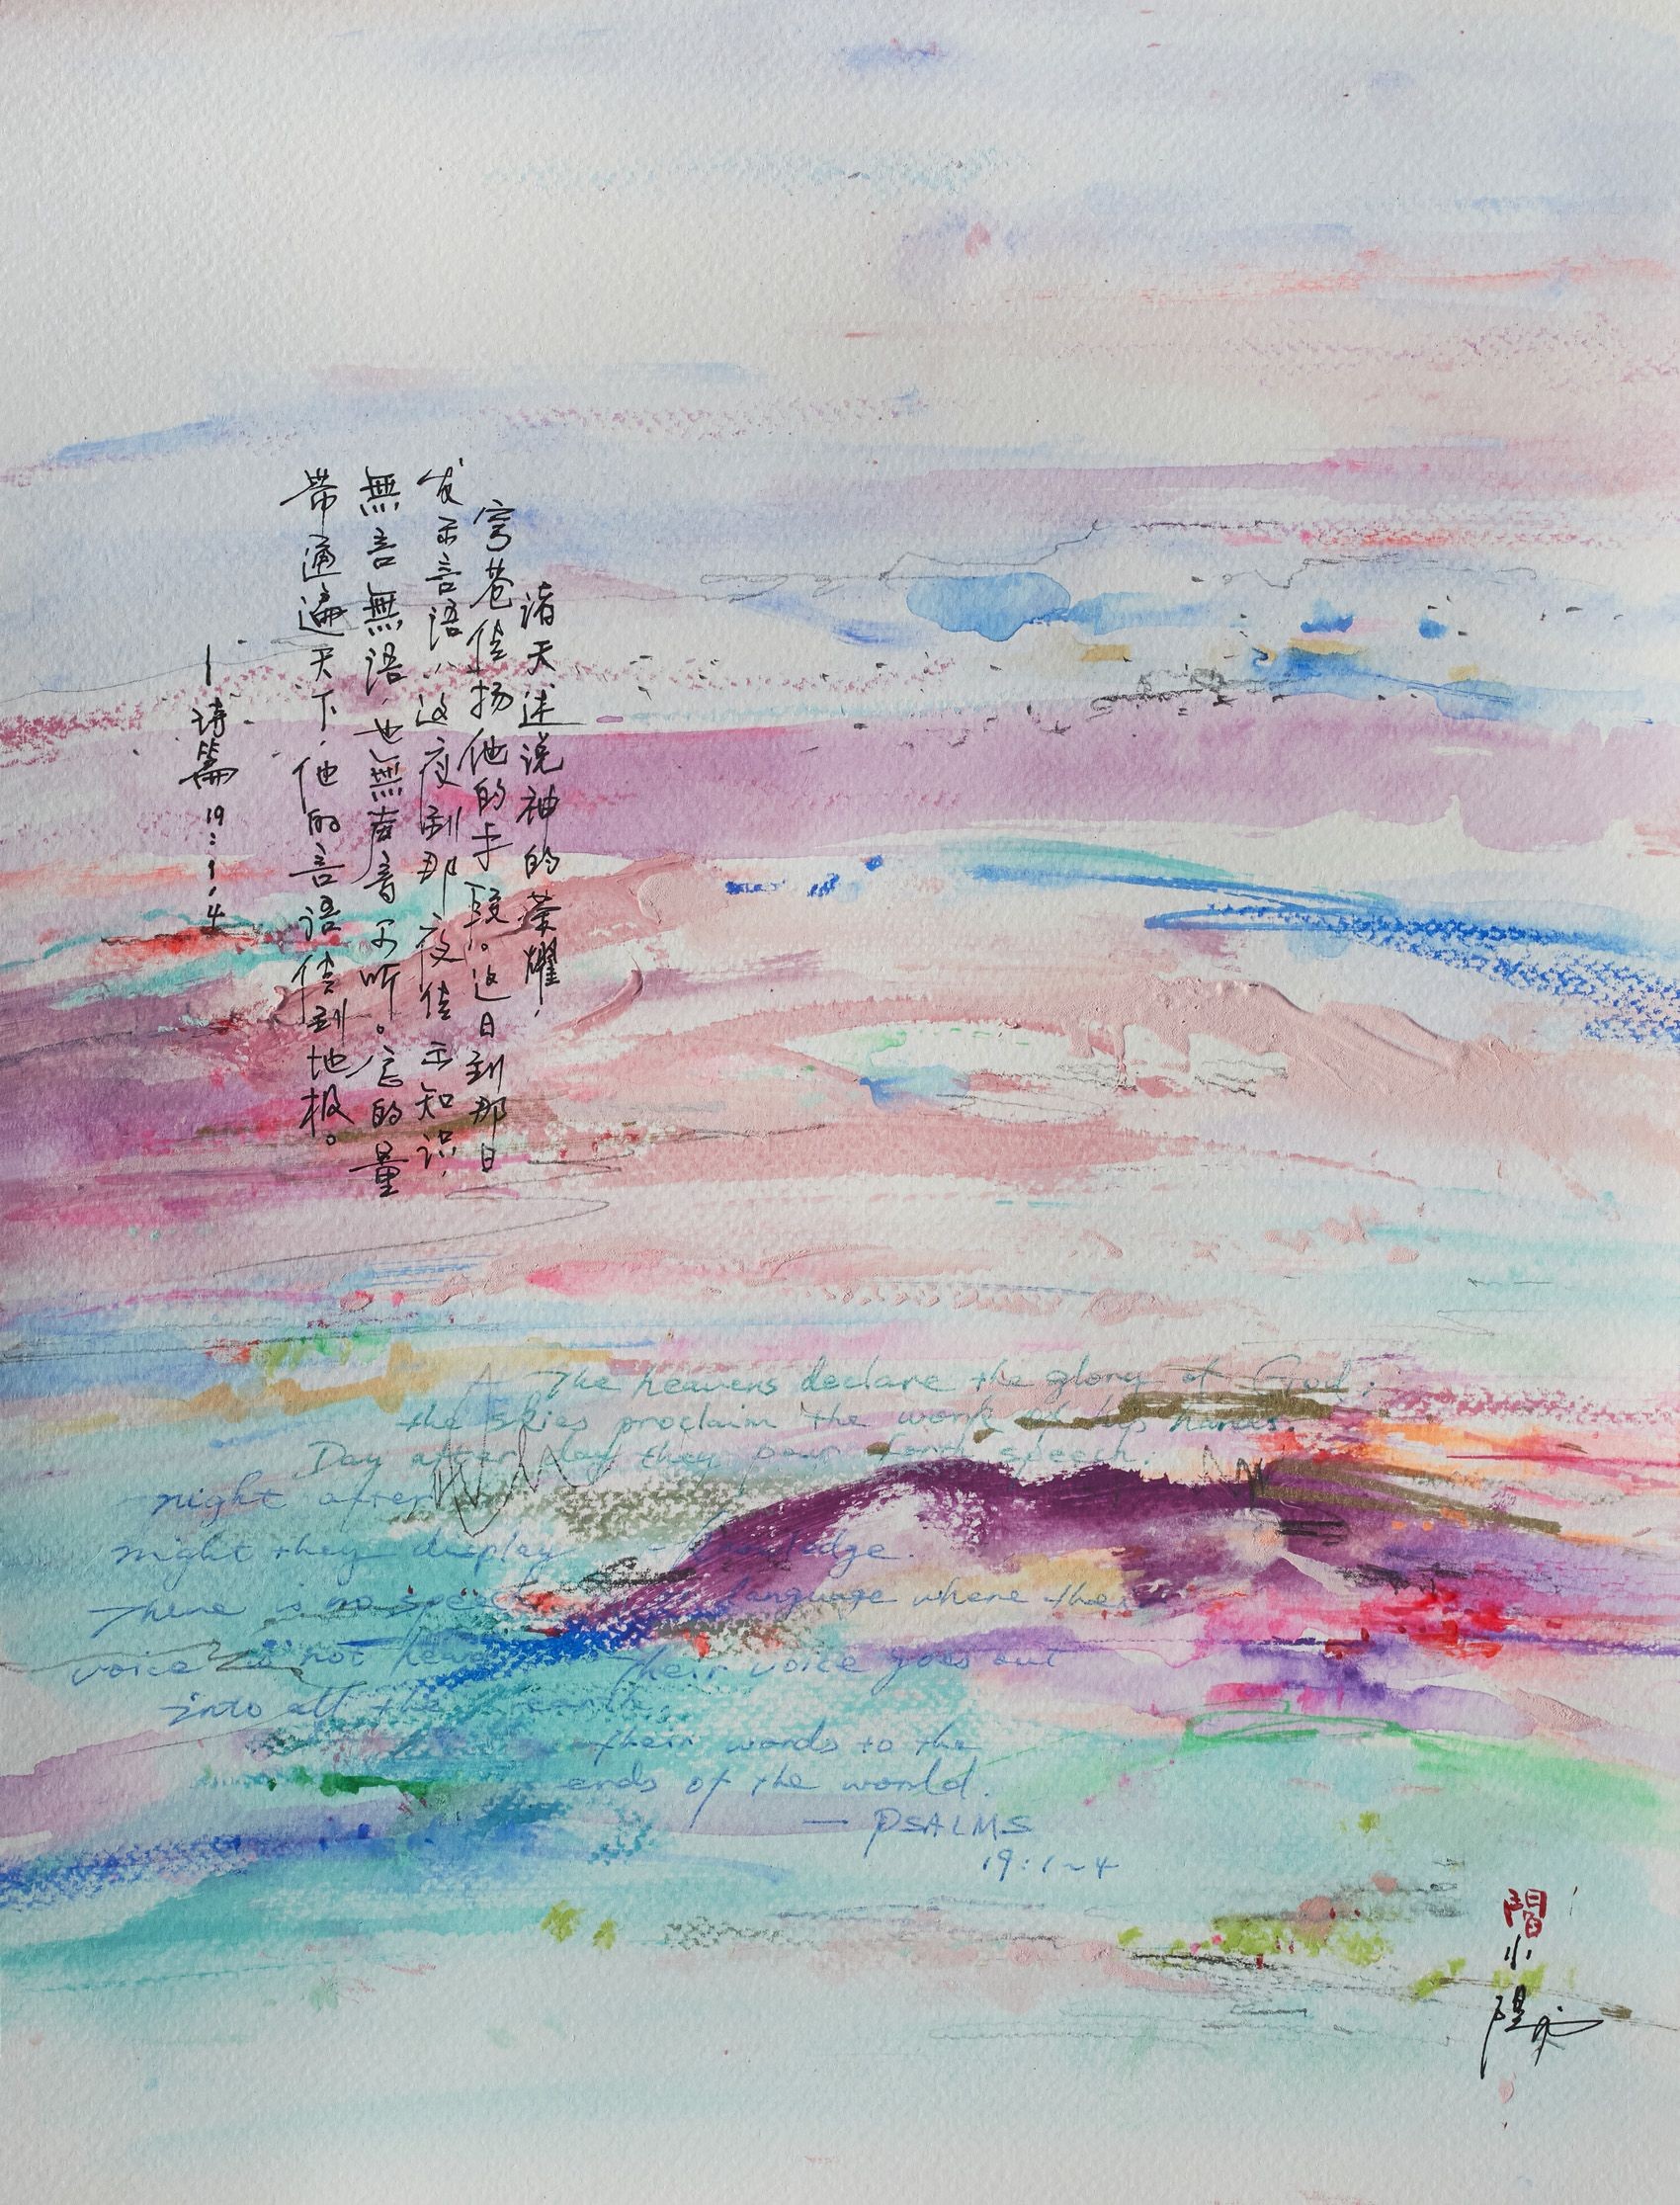 诸天述说神的荣耀,
穹苍传扬他的手段。这日到那日
发示言语,这夜到那夜传示知识,
無言無语,也無声音可听。它的量
带通遍天下,他的言语传到地极。
—诗篇19:1,4
The heavens declare the glory of God;
the skies proclaim the work of his hands.
Day after day they pour forth speech.
night after
night they display knowledge.
There is no speech language where their
voice is not heard Their voice goes out
into all the earth,
their words to the
ends of the world.
— PSALMS
19:1~4
小